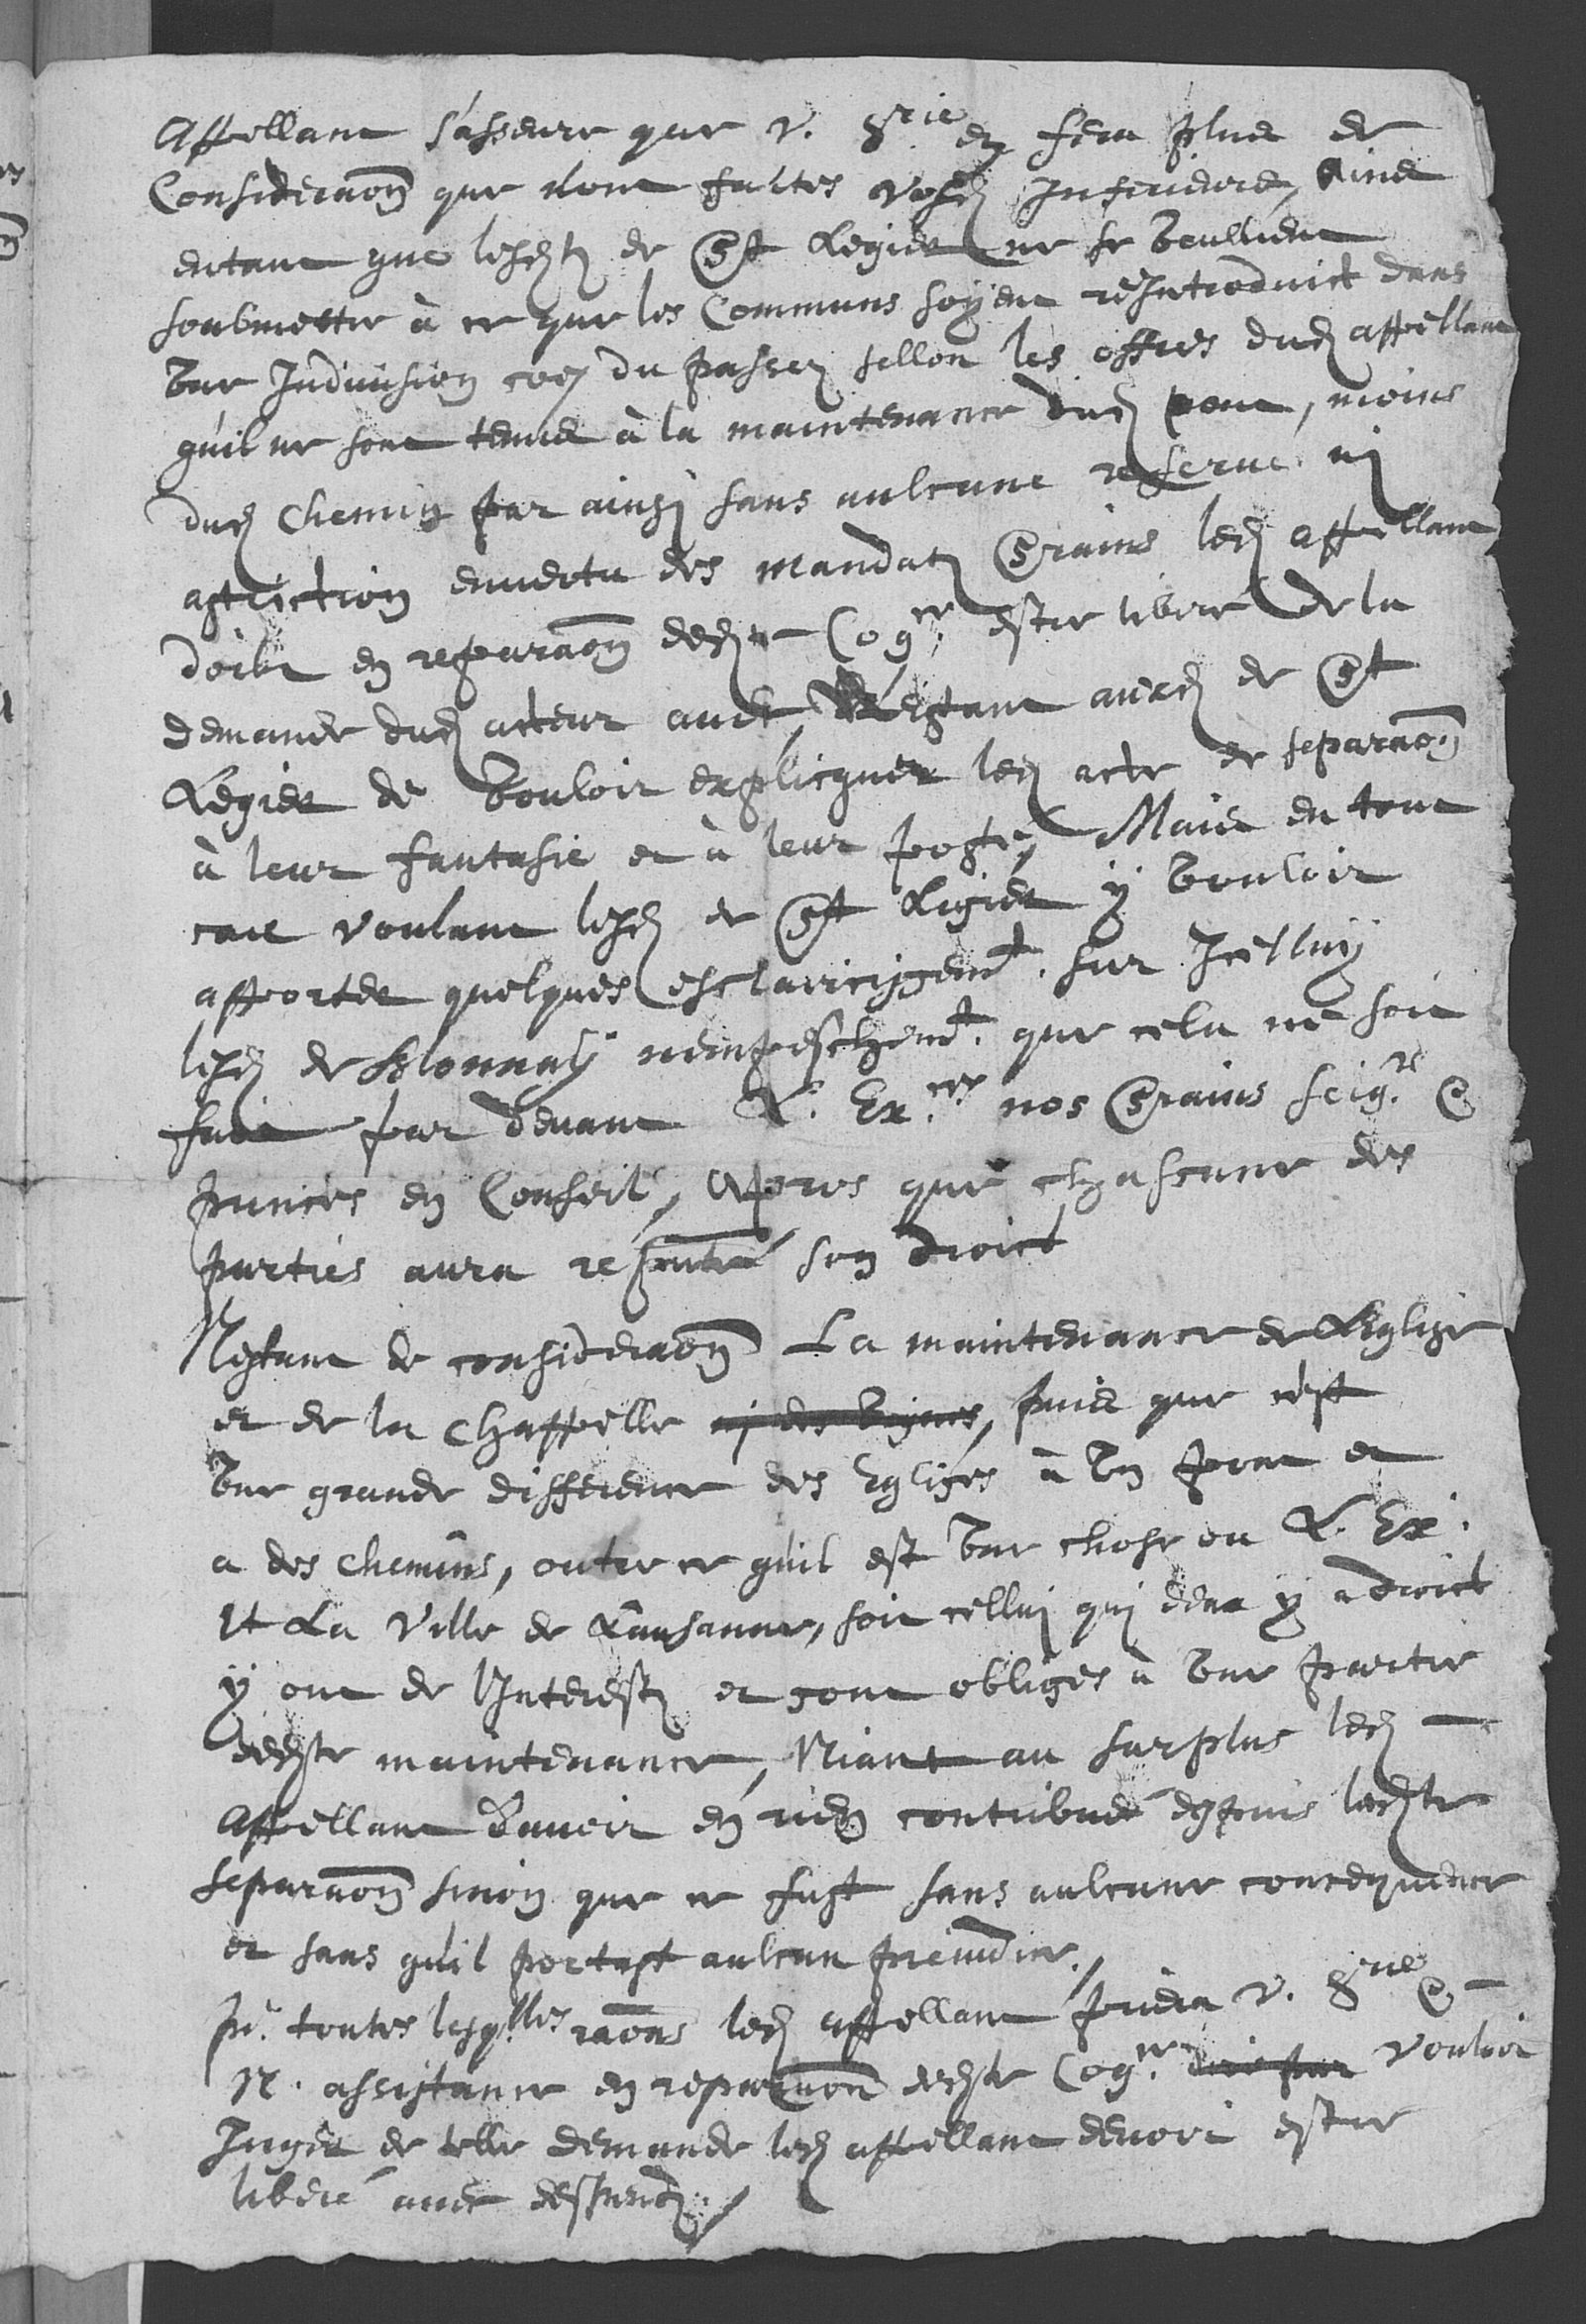 Appellant s'asseure que v. Srie en fera plus de
Consideraon que n'ont faictes vosd Inferieurs, Ains
entant que lesdts de St Legier ne se veullient
soubmettre à ce que les Communs soyent reIntroduict dans
une Indiuision coe du passez sellon les offres dud appellant
qu'il ne sont tenus à la maintenance dud pont, moins
dud Chemin par ainsi sans aulcune reserue ni
astriction enuertu des mandats Srains led appellant
doibt en reparaon dedte Cogce estre liberé de la
demande dud acteur auec, N'estant auxd de St
Legier de vouloir explicquer led acte de separaon
à leur fantasie et à leur poste, Mais en tout
cas voulant lesd de St Legier y vouloir
apporter quelques esclaircissemt. sur Icelluy
lesd de Blonnay n'empeschent. que cela ne soit
faict par deuant L. Exces nos Srains seigrs &
princes en Conseil, Apres que chascune des
parties aura resenté son droict
N'estant de consideraon La maintenance de L'eglise
et de la Chappelle ni des vignes, puis que c'est
une grande difference des Eglises à un pont et
a des chemins, outre ce qu'il est une chose ou L. Ex.
Et La Ville de Lausanne, soit celluy qui d'eux y a droict
y ont de l'Interestz et sont obligés à une partie
dedte maintenance, Niant au surplus led
Appellant d'auoir en rien contribué depuis ladte
separaon sinon que ce fust sans aulcune consequence
et sans qu'il portast aulcun preiudice.
Pr. toutes lesqlles raons led appellant priera v. Srie &
N. assistance en reparaon dedte Cogce vouloir
Juger de telle demande led appellant deuoir estre
liberé auec despends.